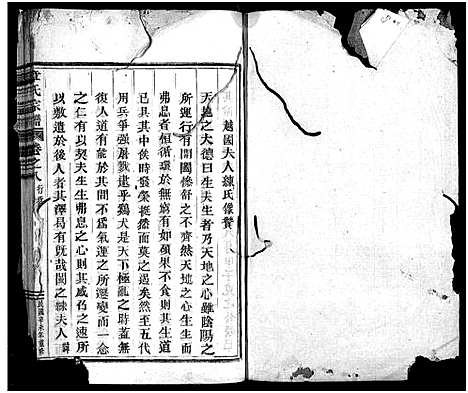 越國夫人練氏像贊
天地之大德曰生夫生者乃天地之心雖陰陽之
所運行有開闔慘舒之不齊然天地之心生生而
弗息者恒循環於無窮有如碩果不食則其生道
已具其中俟時裒榮挺然而莫之遏矣然至五代
用兵爭強屠戮逮乎鷄犬是天下極亂之時葢無
復人道有能於其間不爲氣運之所遷變而一念
之仁有以契夫生生弗息之心則其感召之速所
以敷遺於後人者其澤曷有旣哉閩之練夫人諱
章氏宗譜 卷之八
民國辛未年重修